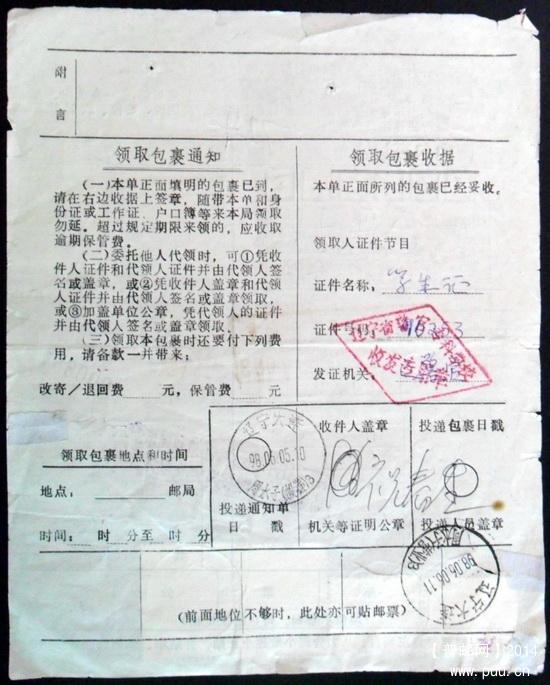 附
言
领取包裹通知
(一)本单正面填明的包裹已到,
请在右边收据上签章,随带本单和身
份证或工作证、户口簿等来本局领取
勿延。超过规定期限来领的,应收取
逾期保管费。
(二)委托他人代领时,可①凭收
件人证件和代领人证件并由代领人签
名或盖章,或②凭收件人盖章和代领
人证件并由代领人签名或盖章领取,
或③加盖单位公章,凭代领人的证件
并由代领人签名或盖章领取。
(三)领取本包裹时还要付下列费
用,请备款一并带来:
改寄/退回费 元,保管费 元
领取包裹收据
本单正面所列的包裹已经妥收。
领取人证件节目
证件名称:学生证
证件号码:
发证机关:
收发专用章
领取包裹地点和时间
地点: 邮局
时间: 时 分至 时 分
辽宁大连
98.06.05.10
投递通知单
日 戳
收件人盖章
机关等证明公章
投递包裹日戳
投递人员盖章
辽宁大连
98.06.06.11
(前面地位不够时,此处亦可贴邮票)
【普邮网】2014
www.puu.cn